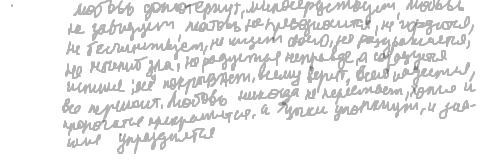 Любовь долготерпит, милосердствует, любовь
не завидует любовь не превозносится, не гордится,
не бесчинствует, не ищет своего, не раздражается,
не мыслит зла, не радуется неправде, а сорадуется
истине все покрывает, всему верит, всего надеется,
все переносит. Любовь никогда не перестает, хотя и
пророчества прекратятся, а языки умолкнут, и зна-
ние упразднится